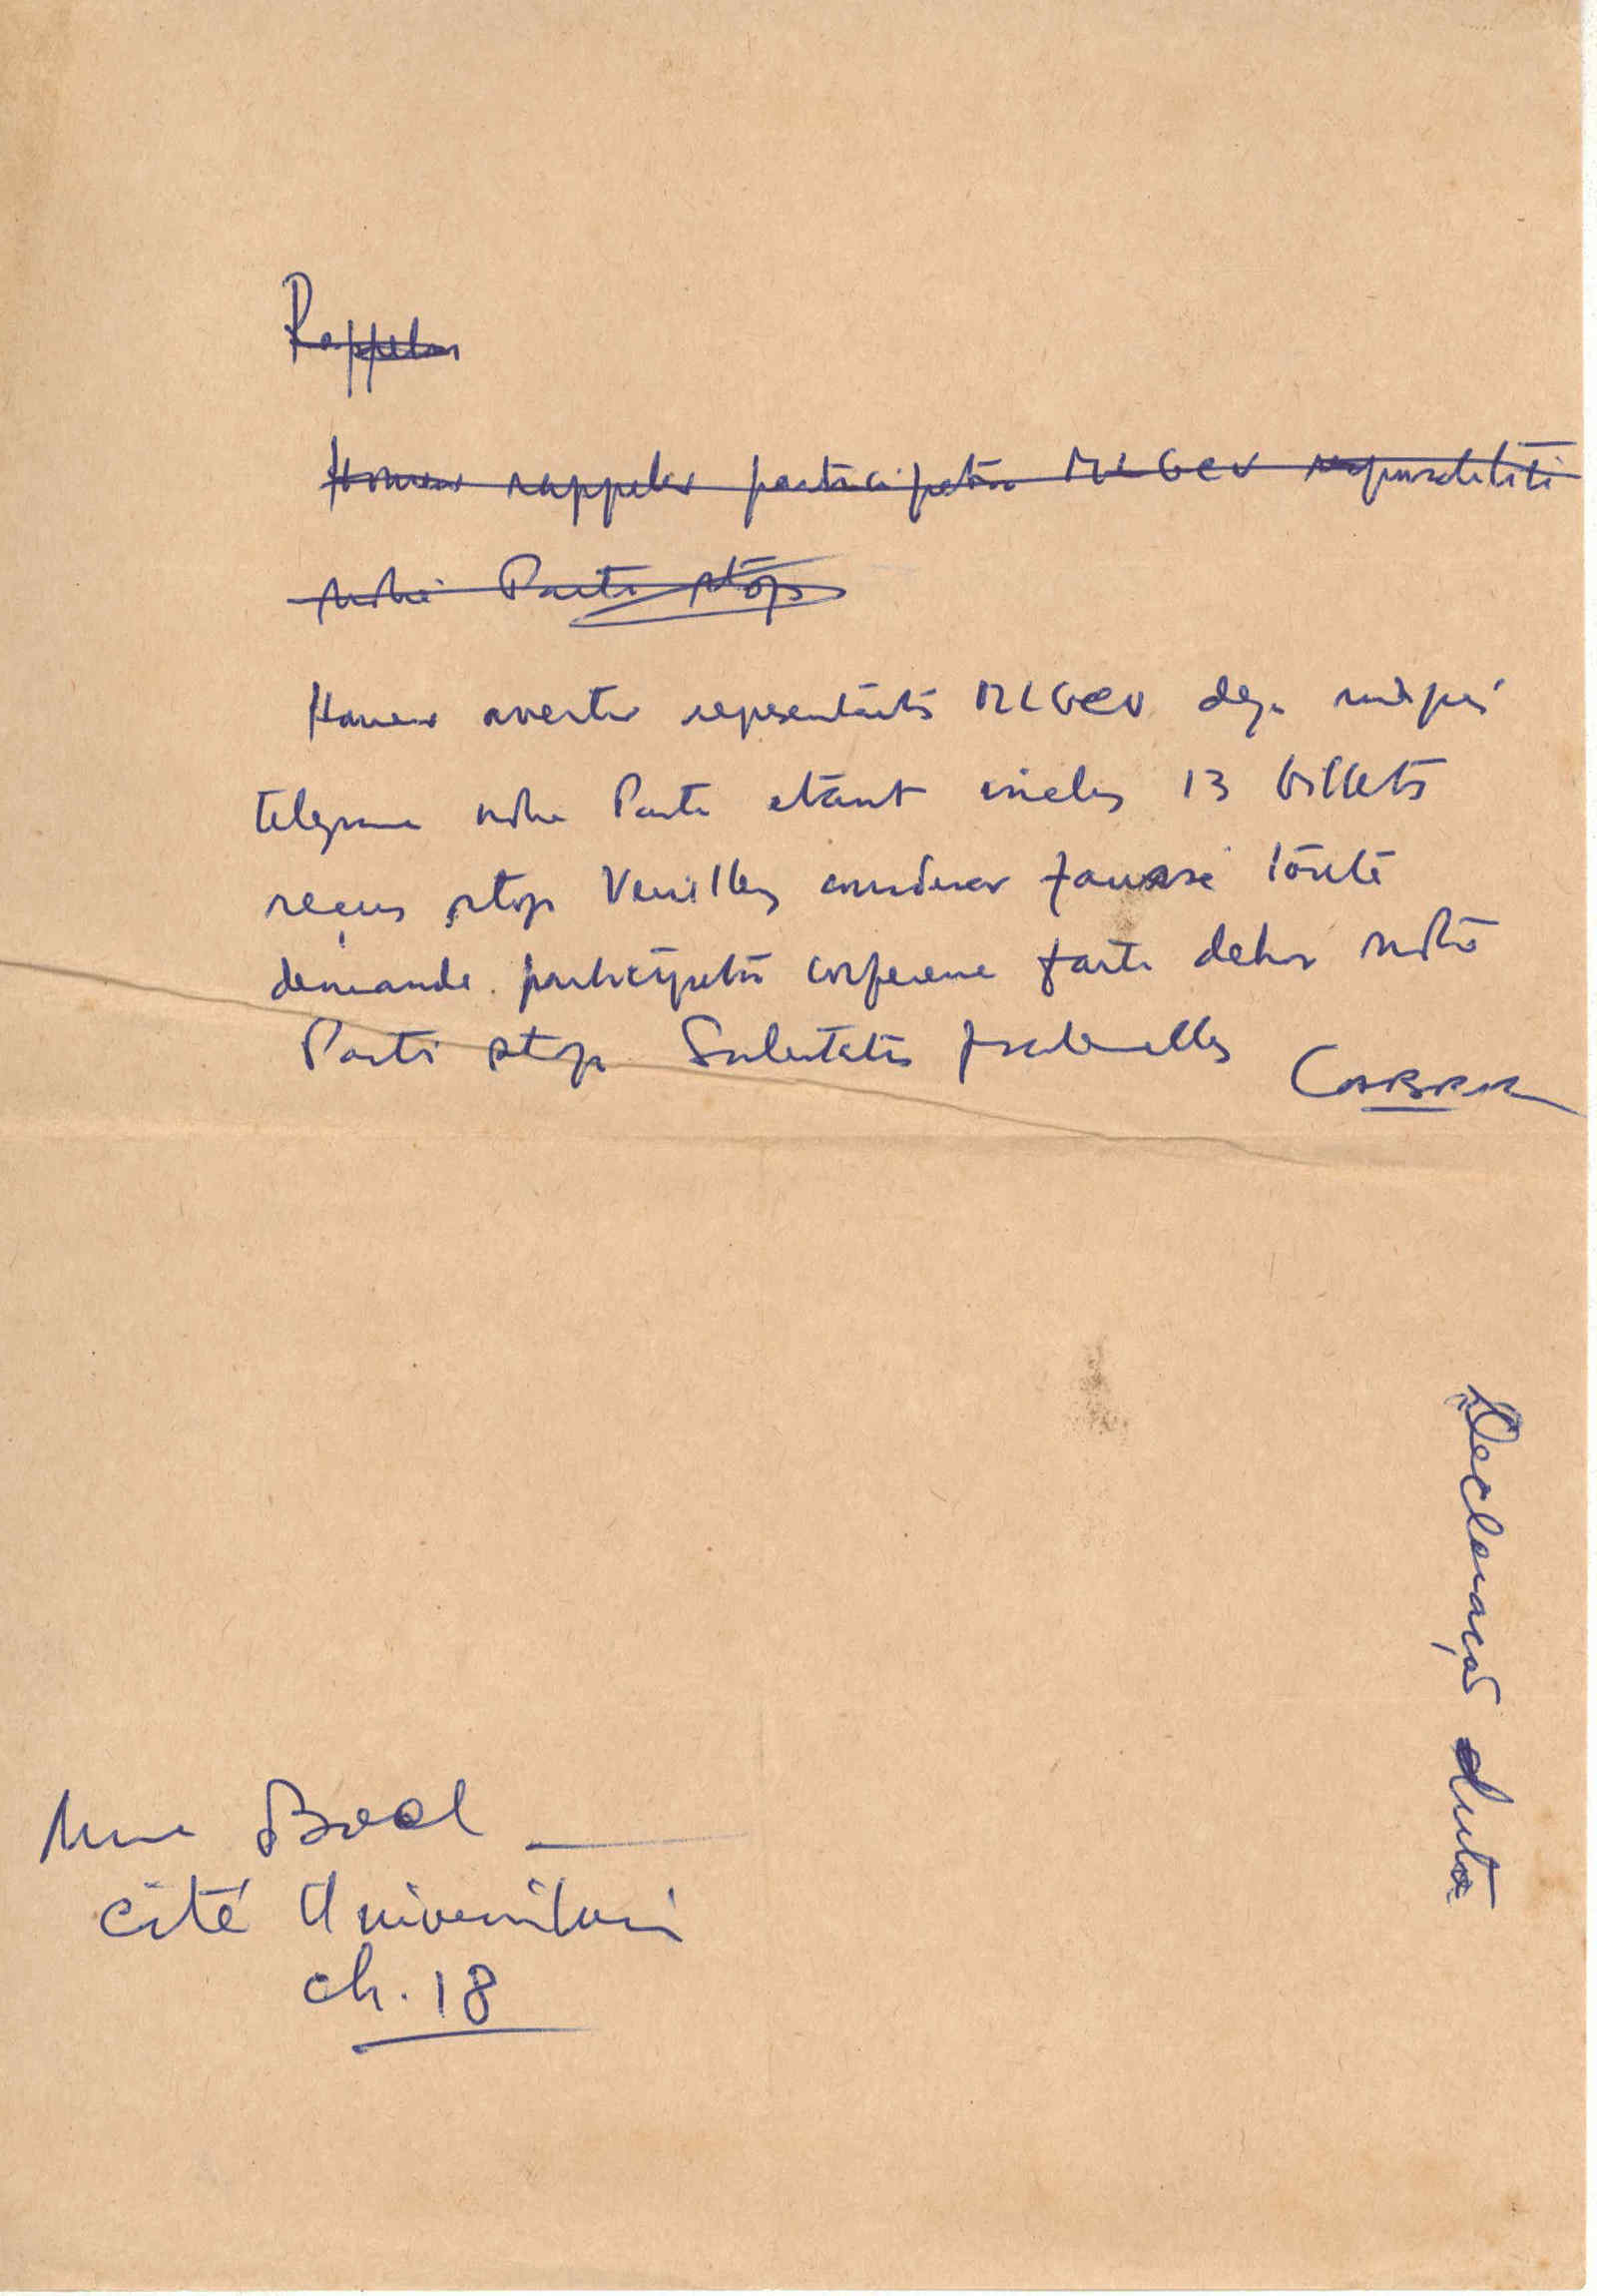 Rappelons
Honneur rappeler participation MLGCV responsabilité
notre Parti stop
Honneur avertir representants MLGCV deja
telegramme notre Parti etant inclus 13 billets
reçus stop Veuillez considerer fausse toute
demande participation conference faite dehors notre
Parti stop Salutations fraternelles CABRAL
Declaração
Mme Boal
Cité Universitaire
ch. 18